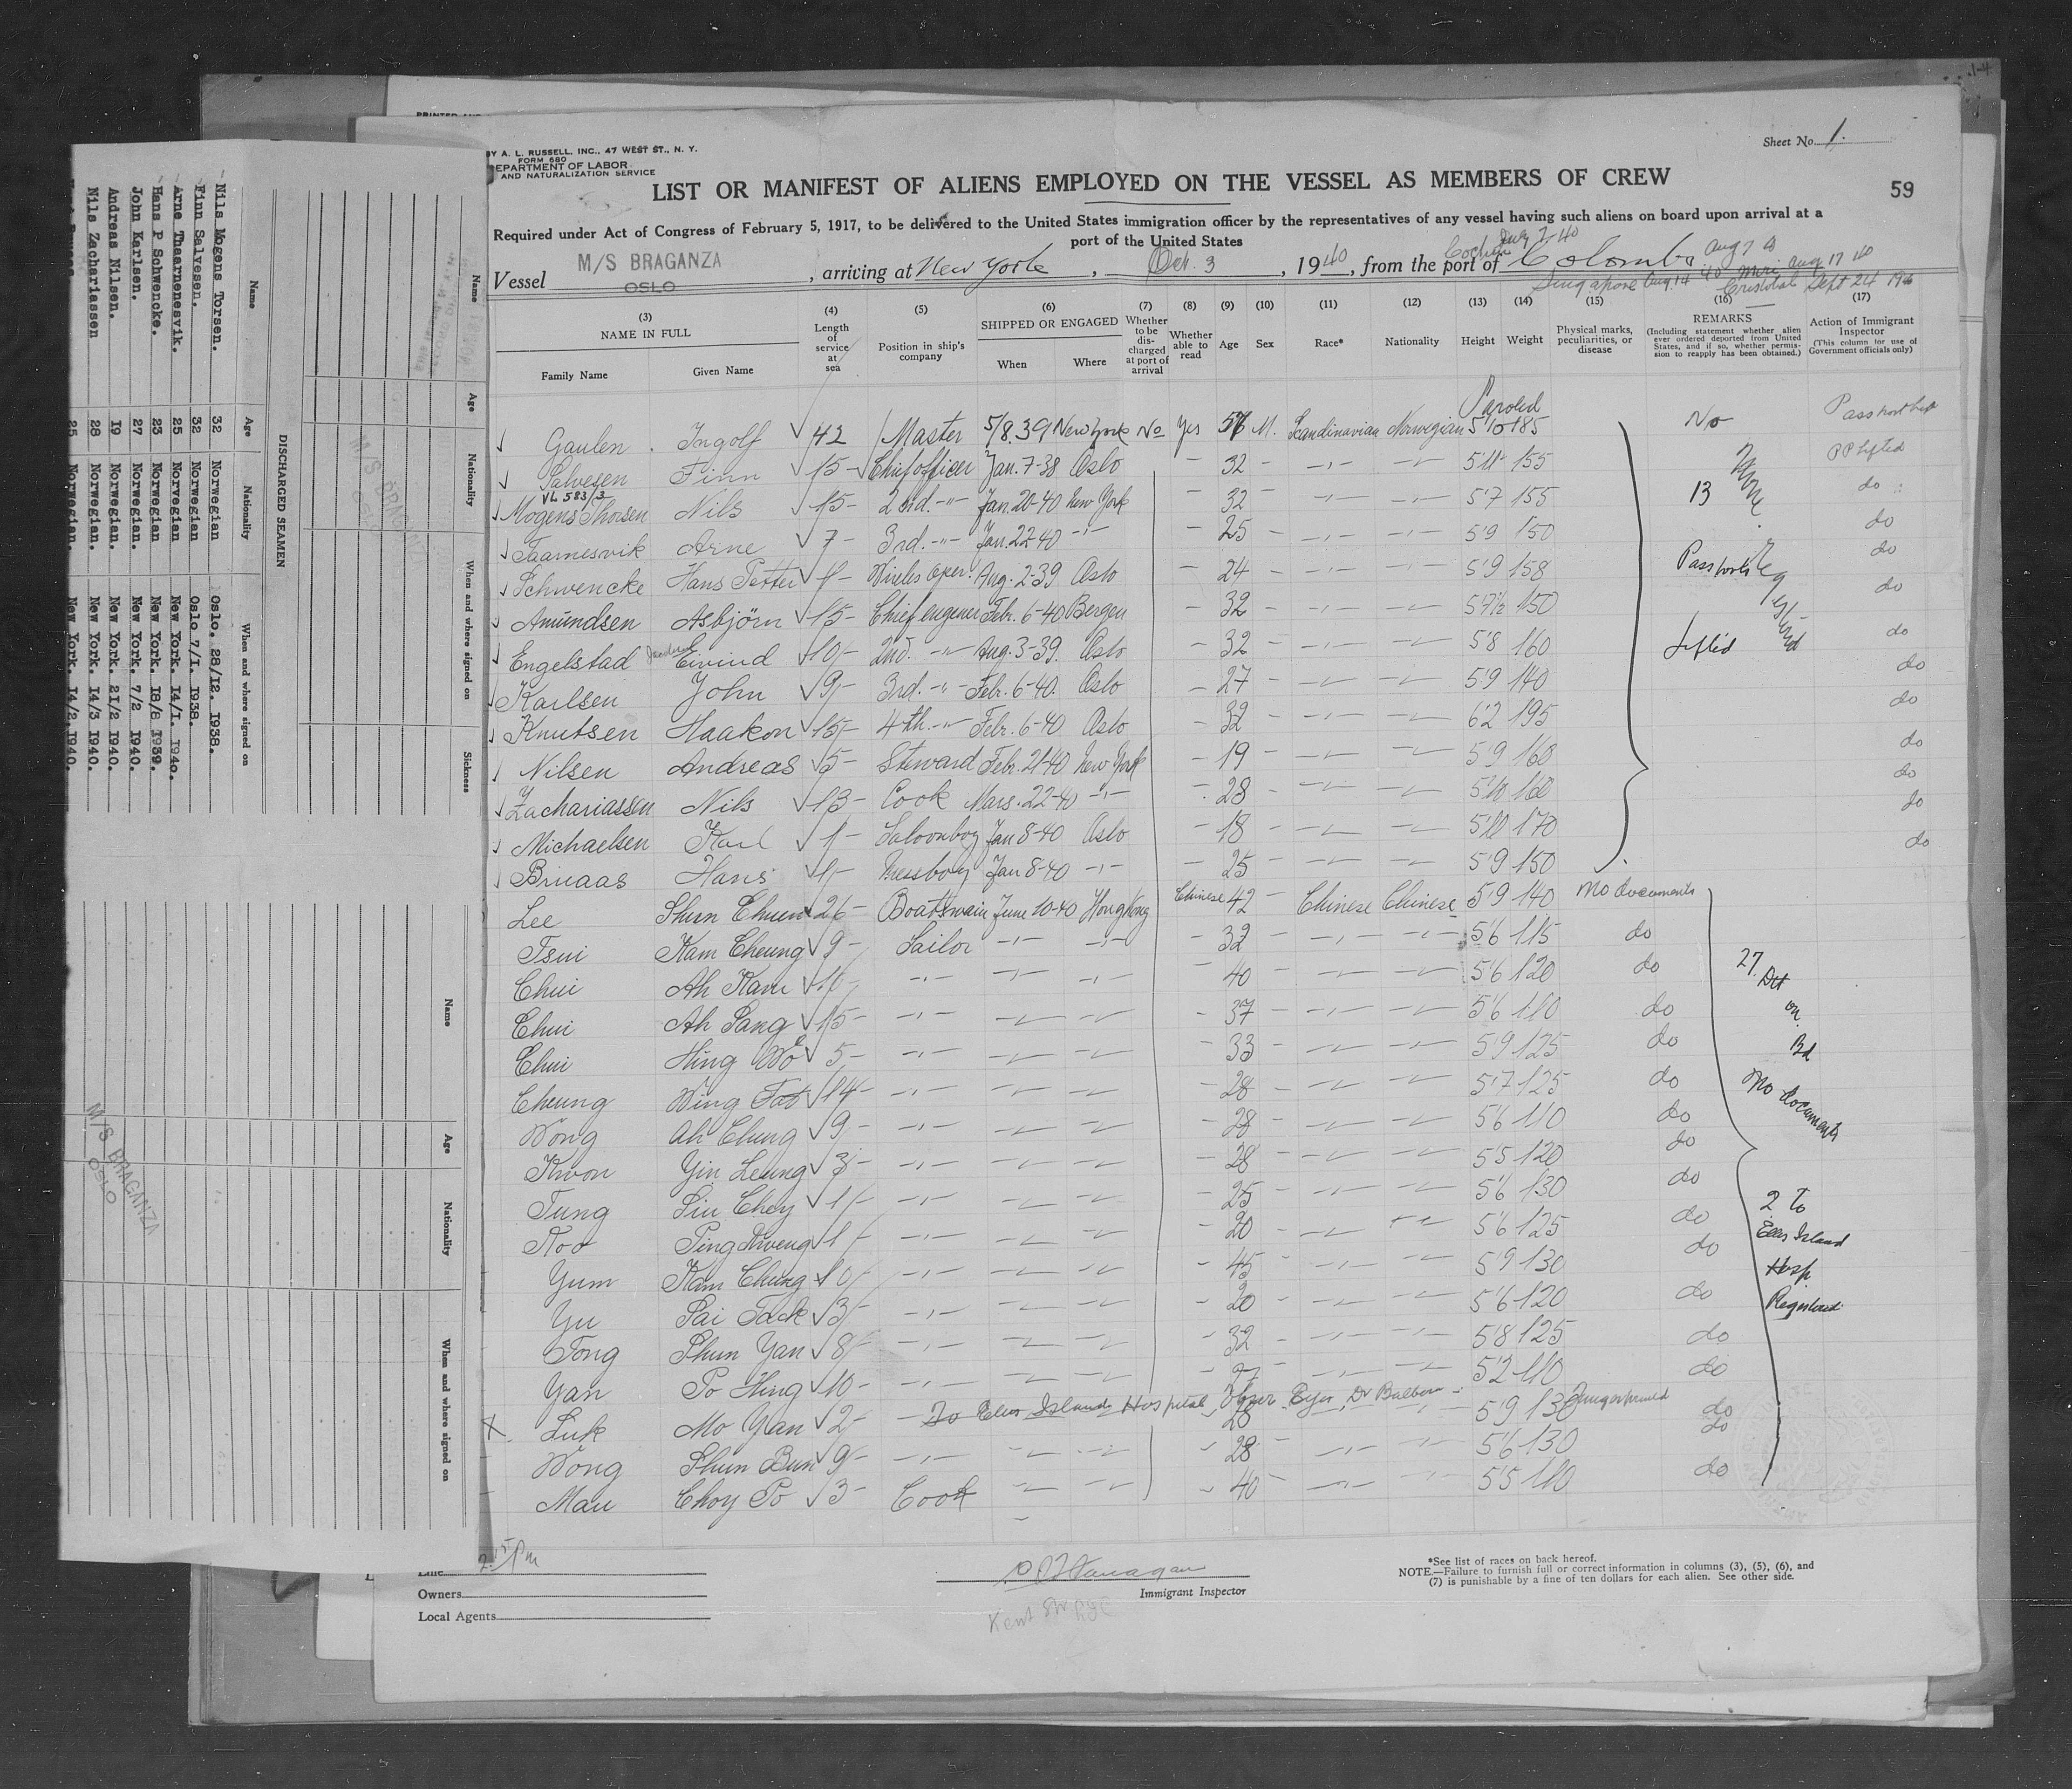 Sheet No. 1.
BY A. L. RUSSELL, INC., 47 WEST ST., N. Y.
FORM 680
DEPARTMENT OF LABOR
AND NATURALIZATION SERVICE
LIST OR MANIFEST OF ALIENS EMPLOYED ON THE VESSEL AS MEMBERS OF CREW
59
Required under Act of Congress of February 5, 1917, to be delivered to the United States immigration officer by the representatives of any vessel having such aliens on board upon arrival at a
port of the United States
Cochin July 7-40
Vessel M/S BRAGANZA OSLO, arriving at New York, Oct. 3, 1940, from the port of Colombo Aug 7 40
Singapore Aug. 14 40 Miri Aug 17 40
Cristobal Sept 24 1940
(3) (4) (5) (6) (7) (8) (9) (10) (11) (12) (13) (14) (15) (16) (17)
NAME IN FULL
Family Name Given Name
Length of service at sea
Position in ship's company
SHIPPED OR ENGAGED
When Where
Whether to be discharged at port of arrival
Whether able to read
Age Sex Race* Nationality Height Weight
Physical marks, peculiarities, or disease
REMARKS
(Including statement whether alien ever ordered deported from United States, and if so, whether permission to reapply has been obtained.)
Action of Immigrant Inspector
(This column for use of Government officials only)
Paroled
Gaulen Ingolf 42 Master 5/8.39 New York No Yes 56 M. Scandinavian Norwegian 5'10 185 No
Salvesen Finn 15- Chief officer Jan. 7-38 Oslo - 32 - -"- -"- 5'11 155 PP Lifted
VL 583/3
Mogens Thorsen Nils 15- 2nd. -"- Jan. 20-40 New York - 32 - -"- -"- 5'7 155 13 None do
Taarnesvik Arne 7- 3rd. -"- Jan. 22-40 -"- - 25 - -"- -"- 5'9 150 do
Schwencke Hans Petter 1- Wireles oper. Aug. 2-39 Oslo - 24 - -"- -"- 5'9 158 Passports Registered do
Amundsen Asbjörn 15- Chief engener Febr. 6-40 Bergen - 32 - -"- -"- 5'7½ 150 do
Engelstad Eivind 10- 2nd. -"- Aug. 3-39. Oslo - 32 - -"- -"- 5'8 160 Lifted do
Karlsen John 9- 3rd. -"- Febr. 6-40. Oslo - 27 - -"- -"- 5'9 140 do
Knutsen Haakon 15- 4th. -"- Febr. 6-40 Oslo - 32 - -"- -"- 6'2 195 do
Nilsen Andreas 5- Steward Febr. 21-40 New York - 19 - -"- -"- 5'9 160 do
Zachariassen Nils 13- Cook Mars. 22-40 -"- - 28 - -"- -"- 5'10 160 do
Michaelsen Karl 1- Saloonboy Jan 8-40 Oslo - 18 - -"- -"- 5'10 170 do
Bruaas Hans 1- Messboy Jan 8-40 -"- - 25 - -"- -"- 5'9 150 do
Lee Shun Chuen 26- Boatswain June 10-40 Hong Kong Chinese 42 - Chinese Chinese 5'9 140 No documents
Tsui Kam Cheung 9- Sailor -"- -"- - 32 - -"- -"- 5'6 115 do
Chui Ah Kam 10- -"- -"- -"- - 40 - -"- -"- 5'6 120 do 27 Det
Chui Ah Sang 15- -"- -"- -"- - 37 - -"- -"- 5'6 110 do on
Chui Hing Wo 5- -"- -"- -"- - 33 - -"- -"- 5'9 125 do Bd
Cheung Wing Fat 14- -"- -"- -"- - 28 - -"- -"- 5'7 125 do No documents
Wong Ah Chung 9- -"- -"- -"- - 28 - -"- -"- 5'6 110 do
Kwon Yin Leung 3- -"- -"- -"- - 28 - -"- -"- 5'5 120 do
Tung Siu Choy 1- -"- -"- -"- - 25 - -"- -"- 5'6 130 do 2 To
Koo Ping Kweng 1- -"- -"- -"- - 20 - -"- -"- 5'6 125 do Ellis Island
Yum Kam Chung 10- -"- -"- -"- - 45 - -"- -"- 5'9 130 do Hosp
Yu Sai Tack 3- -"- -"- -"- - 20 - -"- -"- 5'6 120 do Registered
Tong Shun Yan 8- -"- -"- -"- - 32 - -"- -"- 5'8 125 do
Yan Po Hing 10- -"- -"- -"- -"- -"- 5'2 110 do
X Luk Mo Yan 2- To Ellis Island Hospital, Eyes, Dr 28 5'9 130 Fingerprinted do
Wong Shun Bun 9- -"- -"- -"- - 28 - -"- -"- 5'6 130 do
Mau Choy Po 3- Cook -"- -"- - 40 - -"- 5'5 110 do
2.15 Pm
Line
Owners
Local Agents
Immigrant Inspector
*See list of races on back hereof.
NOTE.—Failure to furnish full or correct information in columns (3), (5), (6), and
(7) is punishable by a fine of ten dollars for each alien. See other side.
DISCHARGED SEAMEN
Name Age Nationality When and where signed on
Nils Mogens Torsen. 32 Norwegian Oslo. 28/12. 1938.
Finn Salvesen. 32 Norwegian Oslo 7/1. 1938.
Arne Thaarnenesvik. 25 Norvegian New York. 14/1. 1940.
Hans P Schwencke. 23 Norwegian. New York. 18/8 1939.
John Karlsen. 27 Norwegian. New York. 7/2 1940.
Andreas Nilsen. 19 Norwegian. New York. 21/2 1940.
Nils Zachariassen 28 Norwegian. New York. 14/3 1940.
25 Norwegian. New York. 14/2 1940.
Name Age Nationality When and where signed on Sickness
M/S BRAGANZA
OSLO
Name Age Nationality When and where signed on
M/S BRAGANZA
OSLO